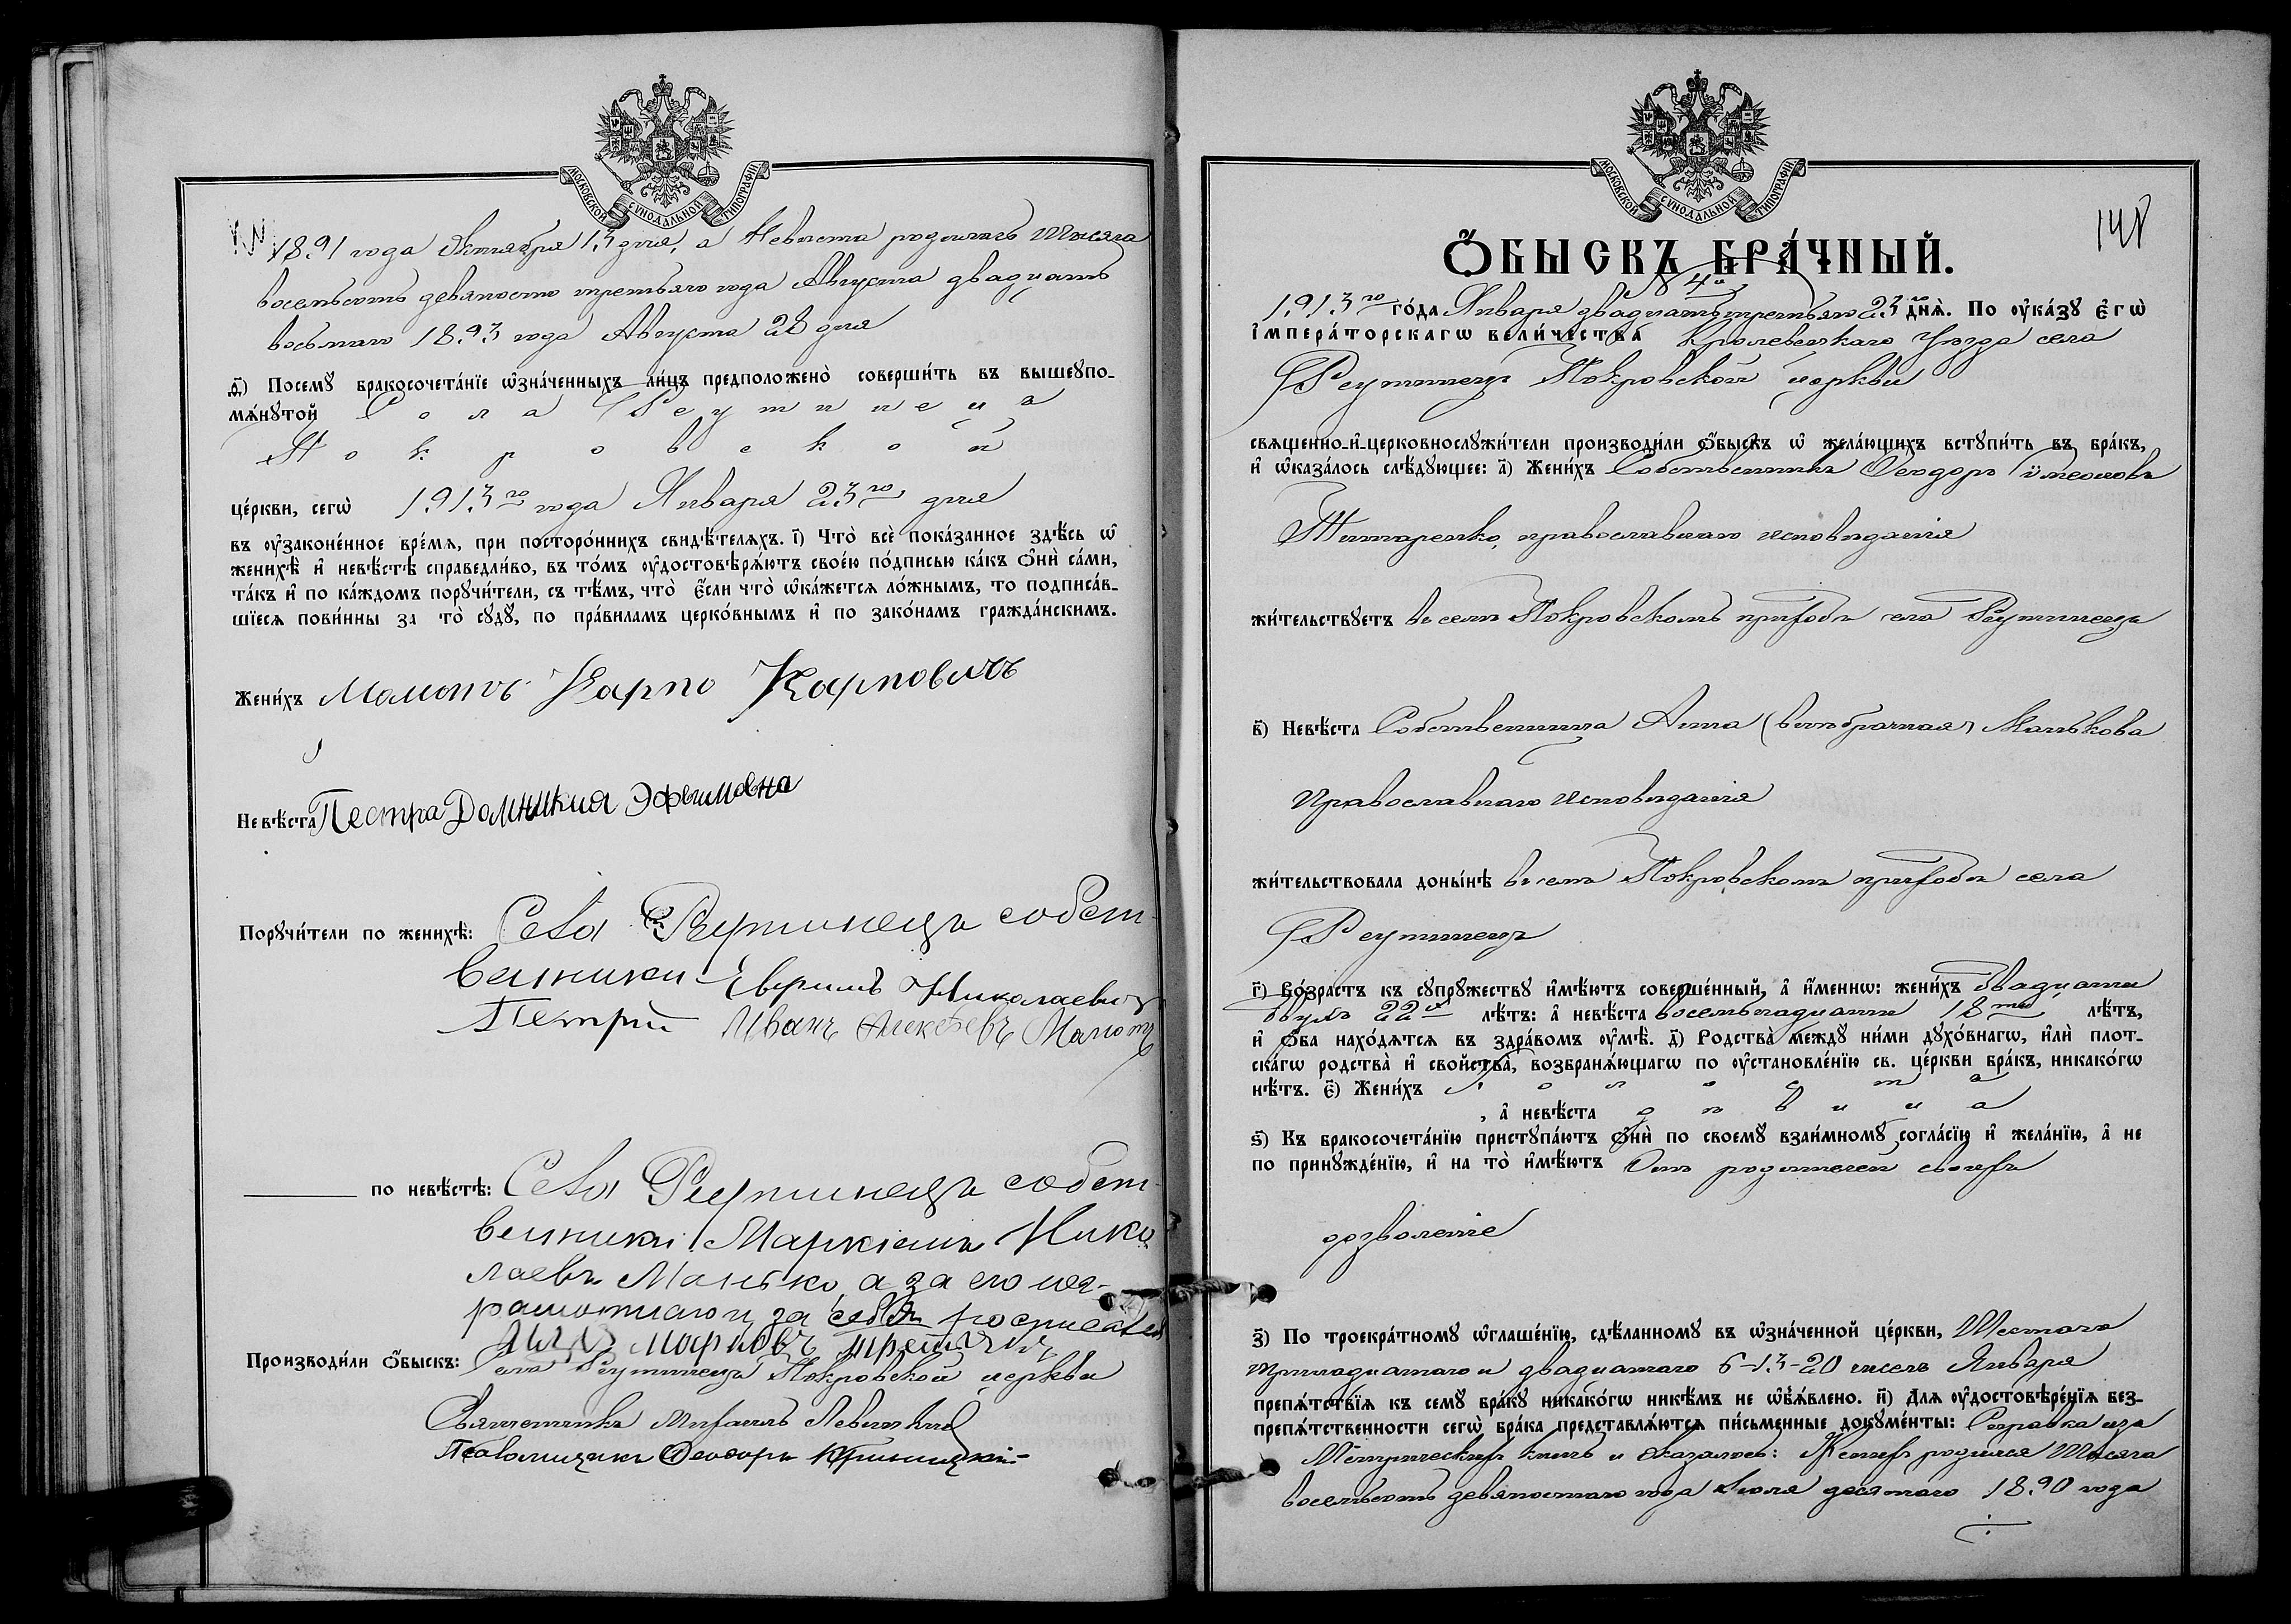 МОСКОВСКОЙ СѴНОДАЛЬНОЙ ТИПОГРАФІИ
1891 года Октября 13 дня, а Невеста родилась Тысяча
восемьсотъ девяносто третьяго года Августа двадцать
восьмаго 1893 года Августа 28 дня
Посемꙋ бракосочета́нїе ѡ҆зна́ченныхъ ли́цъ предположено̀ соверши́ть въ вышеꙋпо-
мѧ́нꙋтой Села Реутинецъ
Покровской
це́ркви, сегѡ̀ 1913го года Января 23го дня
въ ᲂу҆законе́нное вре́мѧ, при посторо́ннихъ свидѣ́телѧхъ. і҃) Что̀ всѐ пока́занное здѣ́сь ѡ҆
женихѣ̀ и҆ невѣ́стѣ справедли́во, въ то́мъ ᲂу҆достовѣрѧ́ютъ свое́ю по́дписью ка́къ ѻ҆нѝ са́ми,
та́къ и҆ по ка́ждомъ порꙋчи́тели, съ тѣ́мъ, что̀ є҆́сли что̀ ѡ҆ка́жетсѧ ло́жнымъ, то подписа́в-
шїесѧ пови́нны за то̀ сꙋдꙋ̀, по пра́виламъ церко́внымъ и҆ по зако́намъ гражда́нскимъ.
Жени́хъ Мамонъ Карпо Карповичъ
Невѣ́ста Пестра Домникия Эфымовна
Порꙋчи́тели по женихѣ̀: Села Реутинецъ собст-
венники Ефримъ Николаевич
Петрій Иванъ Алексѣевъ Мамонъ
по невѣ́стѣ: Села Реутинецъ собст-
венники Маркіанъ Нико
лаевъ Манько, а за его нег-
рамотнаго и за себя росписался
Марковъ
Производи́ли ѻ҆́быскъ: Села Реутинецъ Покровской церкви
Священникъ Михаилъ Левицкій
Псаломщикъ Ѳеодоръ Криницкій
МОСКОВСКОЙ СѴНОДАЛЬНОЙ ТИПОГРАФІИ
ѺБЫСКЪ БРА́ЧНЫЙ.
№ 4й
1913го го́да Января двадцать третьяго 23го днѧ̀. По ᲂу҆ка́зꙋ є҆гѡ̀
і҆мпера́торскагѡ вели́чества Кролевецкаго Уѣзда села
Реутинецъ Покровской церкви
свѧщенно-и҆-церковнослꙋжи́тели производи́ли ѻ҆́быскъ ѡ҆ жела́ющихъ встꙋпи́ть въ бра́къ,
и҆ ѡ҆каза́лось слѣ́дꙋющее: а҃) Жени́хъ Собственникъ Ѳеодоръ Симеоновъ
Титаренко, православнаго исповѣданія
жи́тельствꙋетъ въ семъ Покровскомъ приходѣ села Реутинецъ
в҃) Невѣ́ста Собственница Анна (внѣбрачная) Манькова
Православнаго исповѣданія
жи́тельствовала доны́нѣ въ семъ Покровскомъ приходѣ села
Реутинецъ
г҃) Во́зрастъ къ сꙋпрꙋ́жествꙋ и҆мѣ́ютъ соверше́нный, а҆ и҆́меннѡ: жени́хъ двадцати
двухъ 22хъ лѣ́тъ: а҆ невѣ́ста восемьнадцати 18ти лѣ́тъ,
и҆ ѻ҆́ба нахо́дѧтсѧ въ здра́вомъ ᲂу҆мѣ̀. д҃) Родства̀ междꙋ ни́ми дꙋхо́внагѡ, и҆лѝ плот-
ска́гѡ родства̀ и҆ сво́йства̀, возбранѧ́ющагѡ по ᲂу҆становле́нїю св. це́ркви бра́къ, никако́гѡ
нѣ́тъ. є҃) Жени́хъ холостъ
, а҆ невѣ́ста дѣвица
ѕ҃) Къ бракосочета́нїю пристꙋпа́ютъ ѻ҆нѝ по своемꙋ̀ взаи́мномꙋ согла́сїю и҆ жела́нїю, а҆ не
по принꙋжде́нїю, и҆ на то̀ и҆мѣ́ютъ Отъ родителей своихъ
дозволеніе
з҃) По троекра́тномꙋ ѡ҆глаше́нїю, сдѣ́ланномꙋ въ ѡ҆зна́ченной це́ркви, Шестаго
тринадцатаго и двадцатаго 6-13-20 чиселъ Января
препѧ́тствїѧ къ семꙋ̀ бра́кꙋ никако́гѡ никѣ́мъ не ѡ҆б̾ѧ́влено. и҃) Длѧ ᲂу҆достовѣре́нїѧ без-
препѧ́тственности сегѡ̀ бра́ка представлѧ́ютсѧ пи́сьменные докꙋме́нты: Справка изъ
Метрическихъ книгъ и оказалось: Женихъ родился Тысяча
восемьсотъ девяностаго года Іюля десятаго 1890 года